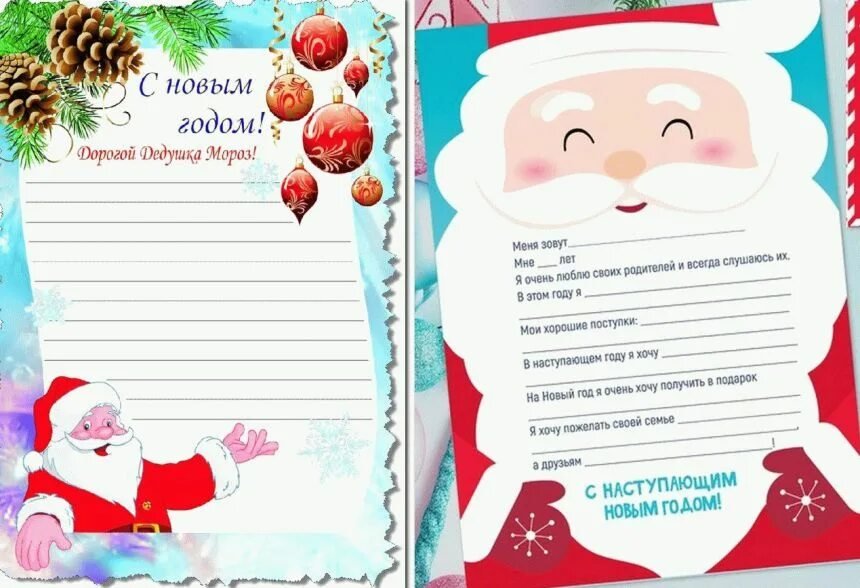 С новым
годом!
Дорогой Дедушка Мороз!
Меня зовут
Мне ___ лет
Я очень люблю своих родителей и всегда слушаюсь их.
В этом году я
Мои хорошие поступки:
В наступающем году я хочу
На Новый год я очень хочу получить в подарок
Я хочу пожелать своей семье
!
а друзьям
С НАСТУПАЮЩИМ
НОВЫМ ГОДОМ!